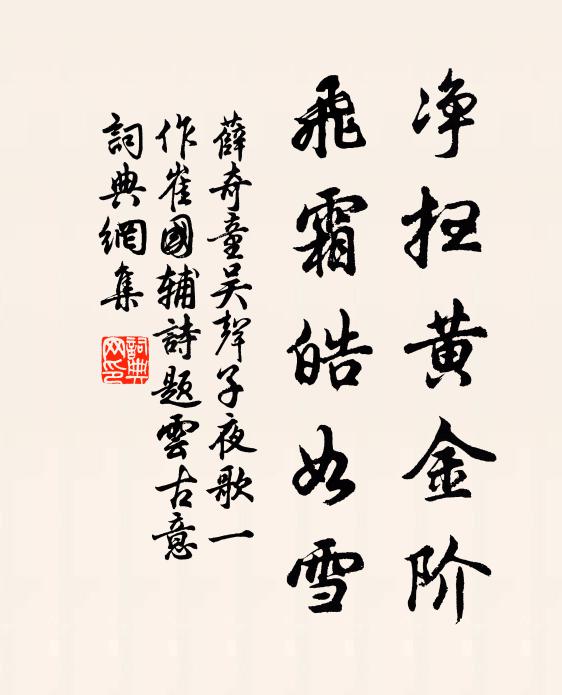 净扫黄金阶
飞霜皓如雪
薛奇童吴聲子夜歌一
作崔國辅詩题雲古意
詞典網集
詞典网印